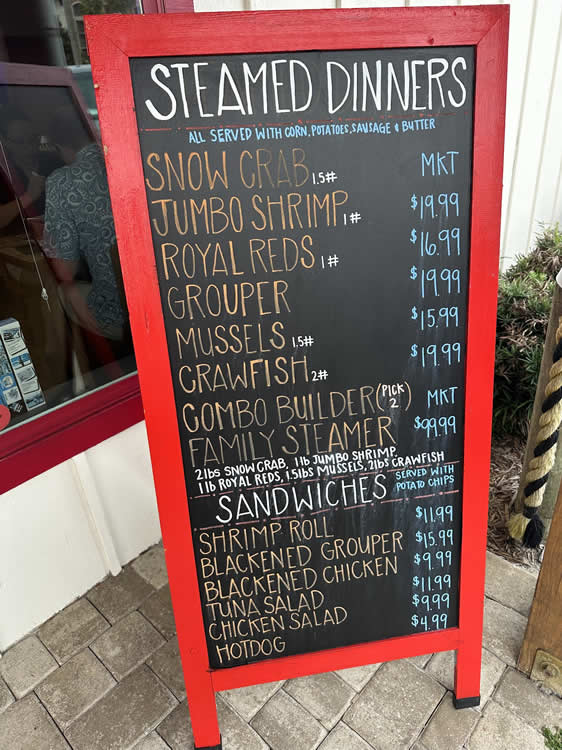 STEAMED DINNERS
ALL SERVED WITH CORN, POTATOES, SAUSAGE & BUTTER
SNOW CRAB 1.5# MKT
JUMBO SHRIMP 1# $19.99
ROYAL REDS 1# $16.99
GROUPER $19.99
MUSSELS 1.5# $15.99
CRAWFISH 2# $19.99
COMBO BUILDER (PICK 2) MKT
FAMILY STEAMER $99.99
2lbs SNOW CRAB, 1lb JUMBO SHRIMP,
1lb ROYAL REDS, 1.5lbs MUSSELS, 2lbs CRAWFISH
SANDWICHES SERVED WITH POTATO CHIPS
SHRIMP ROLL $11.99
BLACKENED GROUPER $15.99
BLACKENED CHICKEN $9.99
TUNA SALAD $11.99
CHICKEN SALAD $9.99
HOTDOG $4.99